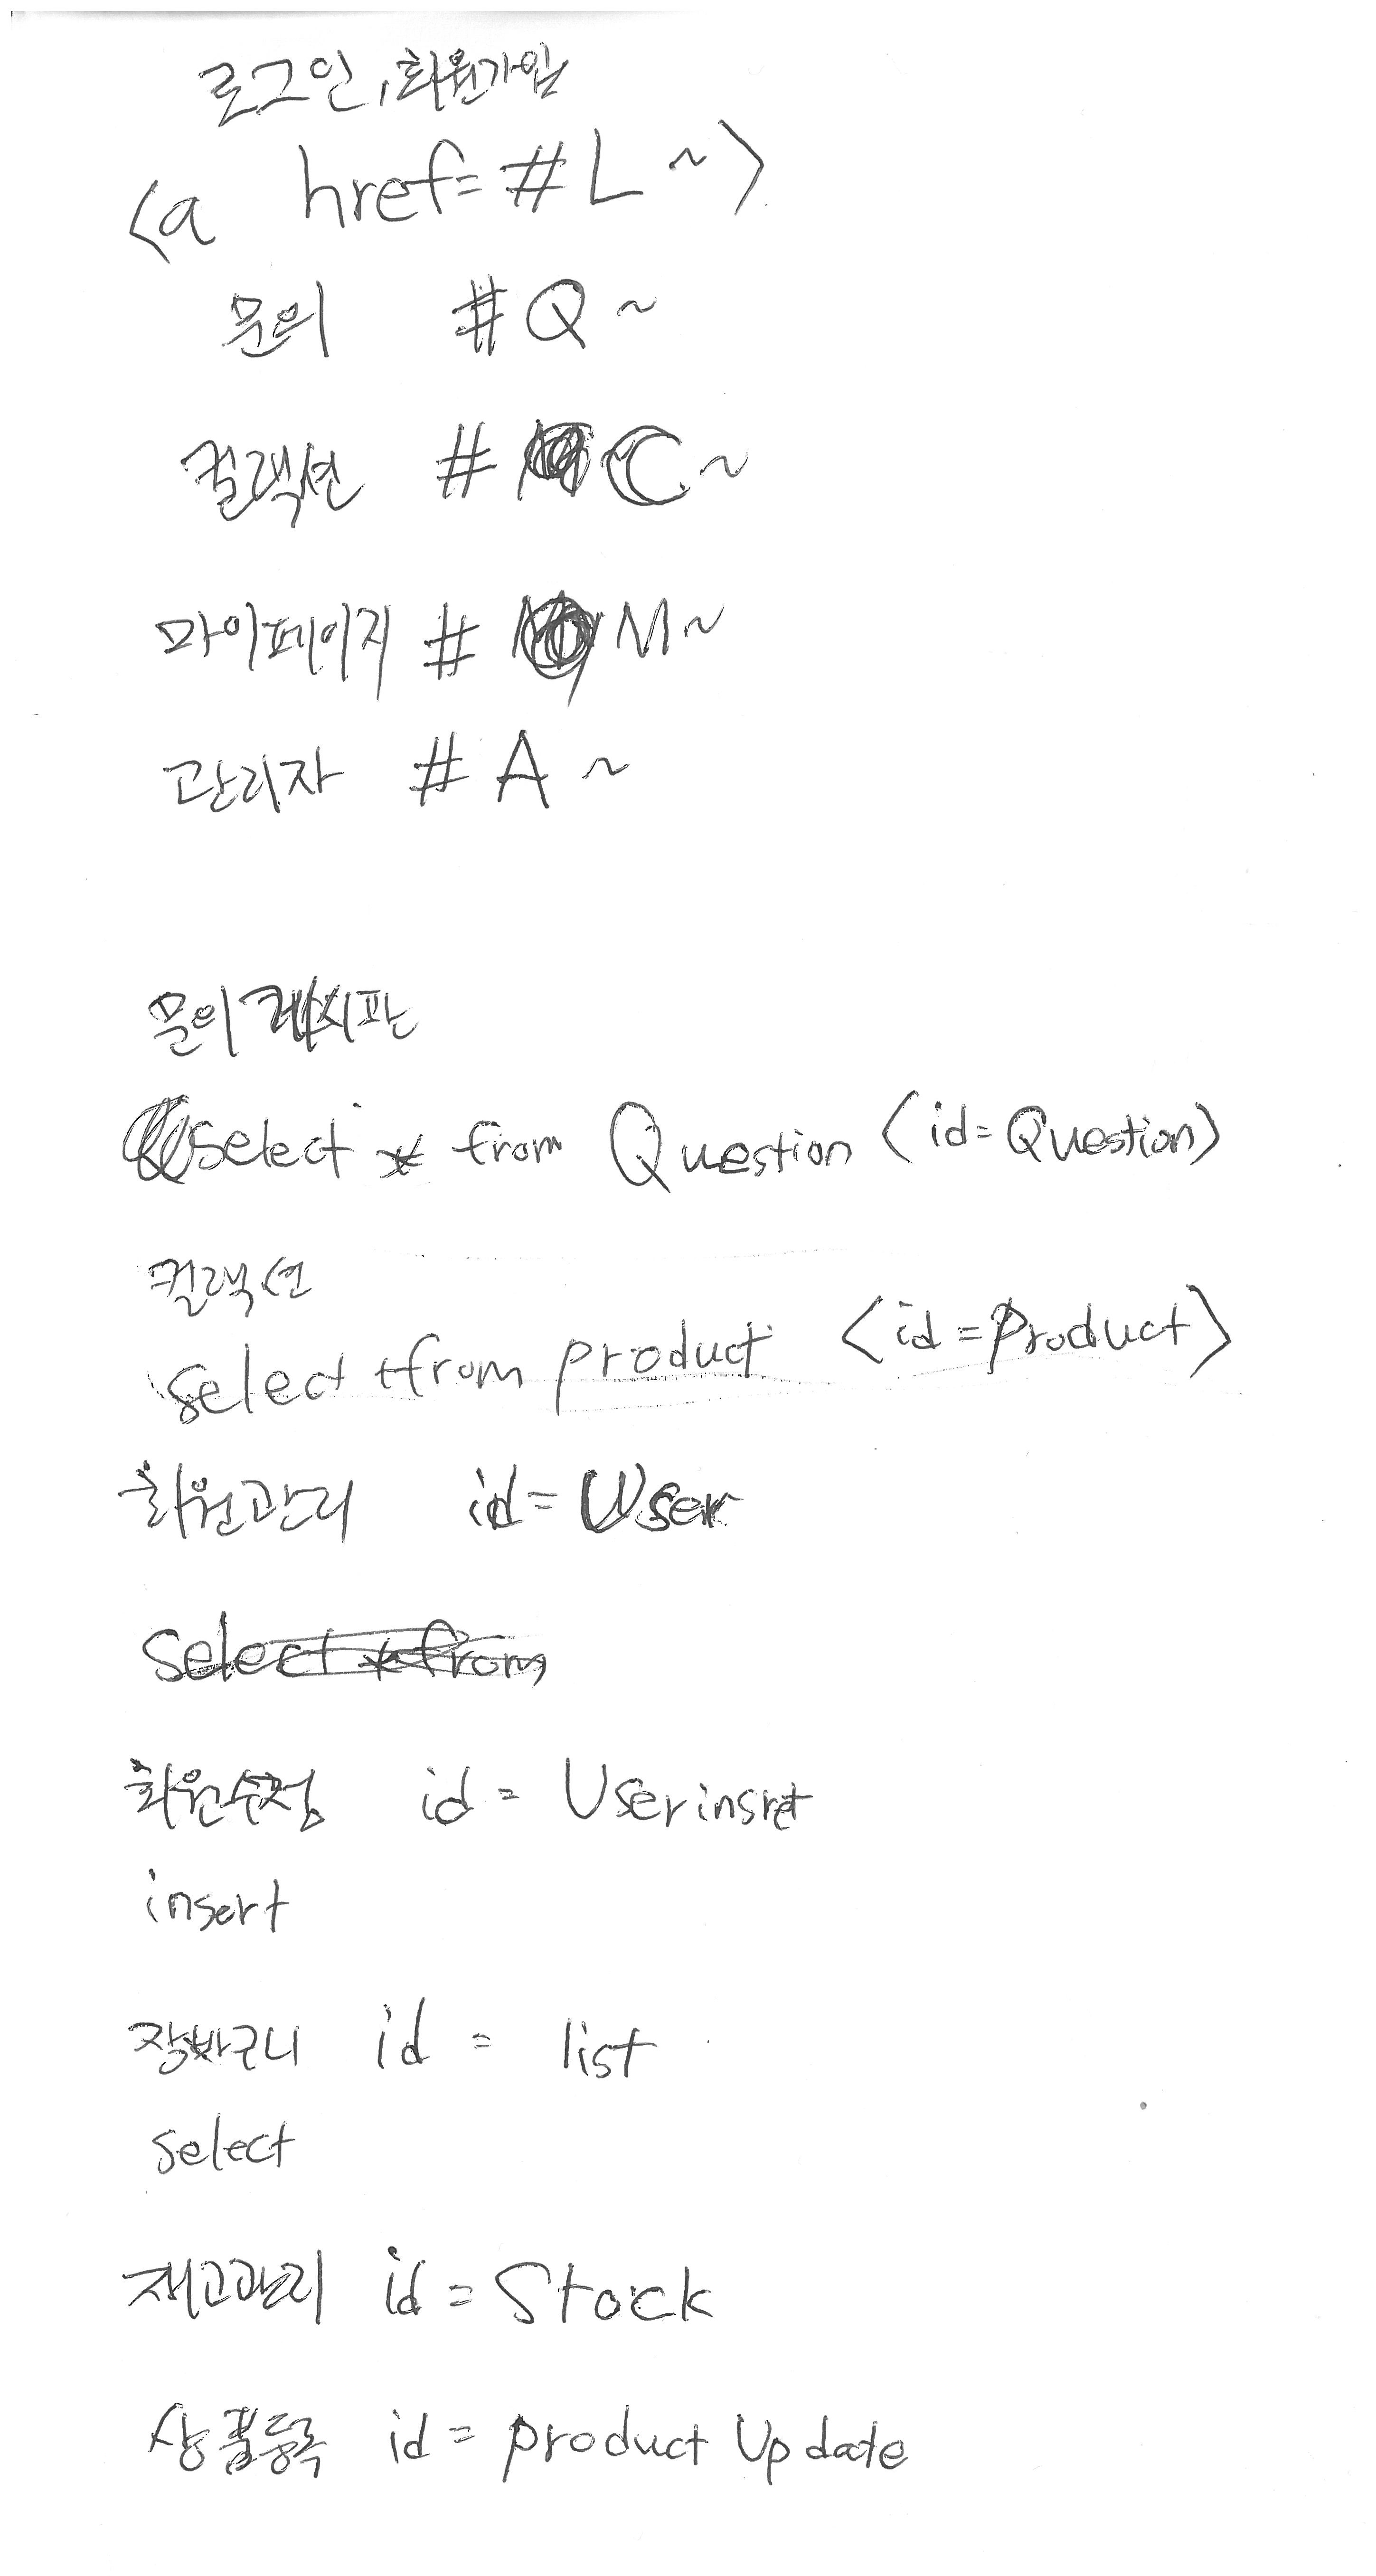 로그인, 회원가입
<a href=#L~>
문의 #Q~
컬랙션 #C~
마이페이지 #M~
관리자 #A~
문의 게시판
select * from Question <id=Question>
컬랙션
select *from product <id=product>
회원관리 id=User
select *from
회원수정 id= Userinsret
insert
장바구니 id = list
select
재고관리 id=Stock
상품등록 id= product Update